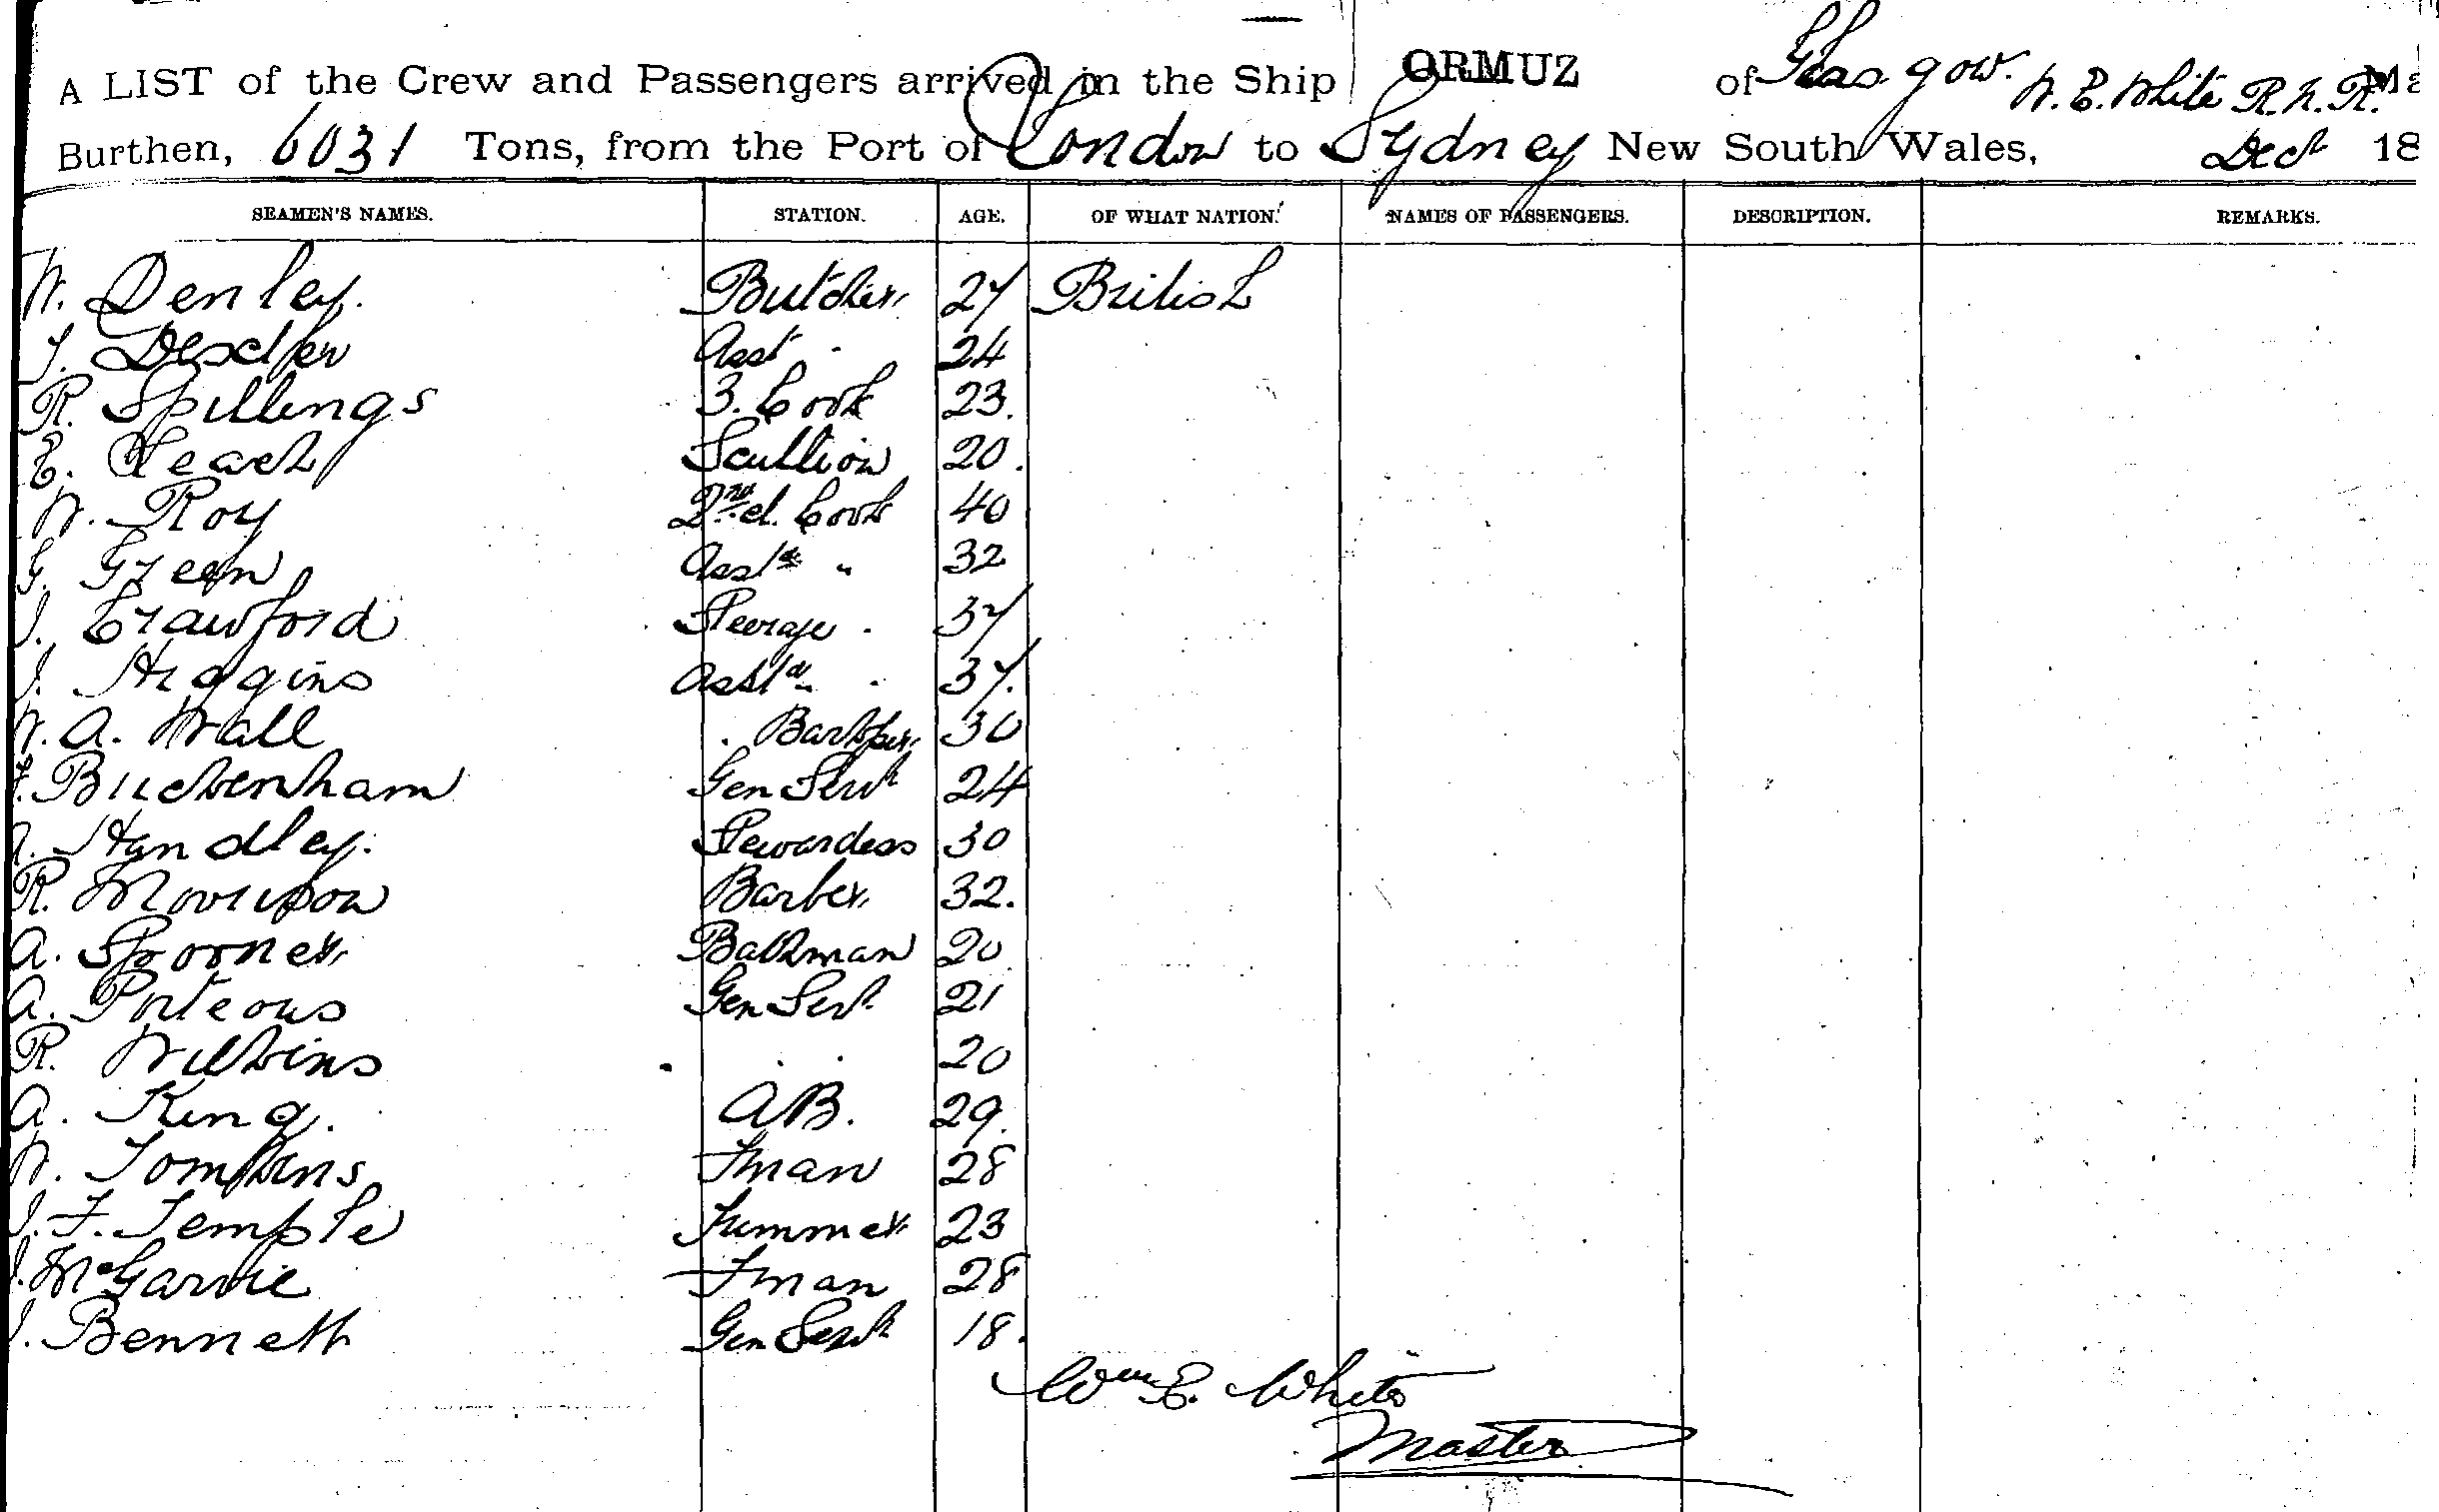 A LIST of the Crew and Passengers arrived in the Ship ORMUZ of Glasgow. W. E. White R.N.R. Ma
Burthen, 6031 Tons, from the Port of London to Sydney New South Wales, Dec 18
SEAMEN'S NAMES. STATION. AGE. OF WHAT NATION. NAMES OF PASSENGERS. DESCRIPTION. REMARKS.
W. Denley. Butcher 27 British
Asst " 24
R. Spillings 3. Cook 23.
E. Leach Scullion 20.
W. Roy 2nd cl. Cook 40
G. Green Asst " 32
J. Crawford Steerage " 37
J. Higgins Asst " " 37.
W. A. Wall " Barkpr 30
F. Buckenham Gen Servt 24
A. Handley. Stewardess 30
R. Morrison Barber 32.
A. Spooner Bathman 20
A. Porteous Gen Servt 21
R. Wilkins " " 20
A. King. AB. 29.
W. Tomkins Fman 28
J. F. Temple Trimmer 23
J. McGarvie Fman 28
J. Bennett Gen Servt 18.
Wm E. White
Master